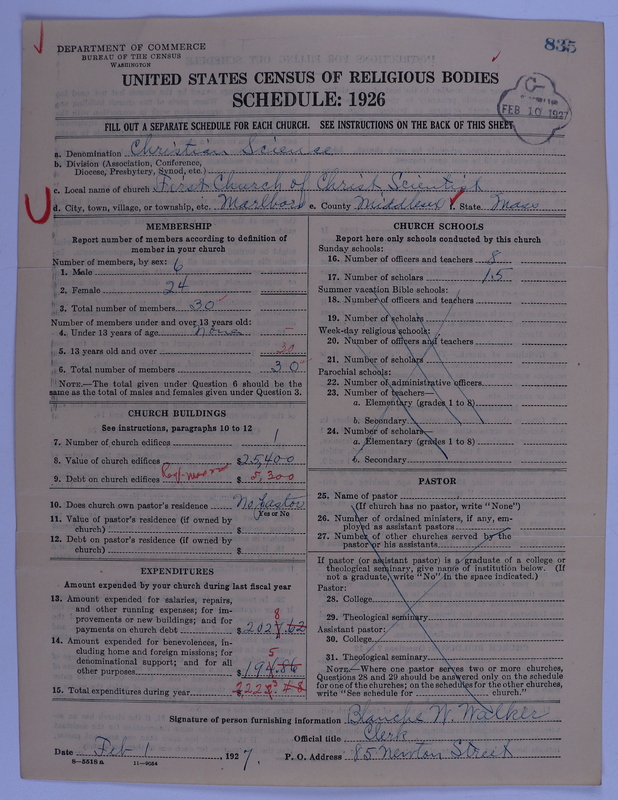 835
DEPARTMENT OF COMMERCE
BUREAU OF THE CENSUS
WASHINGTON
UNITED STATES CENSUS OF RELIGIOUS BODIES
SCHEDULE: 1926
FEB 10 1927
FILL OUT A SEPARATE SCHEDULE FOR EACH CHURCH. SEE INSTRUCTIONS ON THE BACK OF THIS SHEET
a. Denomination Christian Science
b. Division (Association, Conference,
Diocese, Presbytery, Synod, etc.)
c. Local name of church First Church of Christ Scientist
d. City, town, village, or township, etc. Marlboro e. County Middlesex f. State Mass
MEMBERSHIP
Report number of members according to definition of
member in your church
Number of members, by sex:
1. Male 6
2. Female 24
3. Total number of members 30
Number of members under and over 13 years old:
4. Under 13 years of age none –
5. 13 years old and over 30
6. Total number of members 30
NOTE.—The total given under Question 6 should be the
same as the total of males and females given under Question 3.
CHURCH BUILDINGS
See instructions, paragraphs 10 to 12
7. Number of church edifices 1
8. Value of church edifices $25,400
9. Debt on church edifices $5,300
10. Does church own pastor's residence No pastor
Yes or No
11. Value of pastor's residence (if owned by
church) $
12. Debt on pastor's residence (if owned by
church) $
EXPENDITURES
Amount expended by your church during last fiscal year
13. Amount expended for salaries, repairs,
and other running expenses; for im-
provements or new buildings; and for 8
payments on church debt $2027.62
14. Amount expended for benevolences, in-
cluding home and foreign missions; for
denominational support; and for all 5
other purposes $194.86
15. Total expenditures during year $2223
CHURCH SCHOOLS
Report here only schools conducted by this church
Sunday schools:
16. Number of officers and teachers 8
17. Number of scholars 15
Summer vacation Bible schools:
18. Number of officers and teachers
19. Number of scholars
Week-day religious schools:
20. Number of officers and teachers
21. Number of scholars
Parochial schools:
22. Number of administrative officers
23. Number of teachers—
a. Elementary (grades 1 to 8)
b. Secondary
24. Number of scholars—
a. Elementary (grades 1 to 8)
b. Secondary
PASTOR
25. Name of pastor
(If church has no pastor, write "None")
26. Number of ordained ministers, if any, em-
ployed as assistant pastors
27. Number of other churches served by the
pastor or his assistants
If pastor (or assistant pastor) is a graduate of a college or
theological seminary, give name of institution below. (If
not a graduate, write "No" in the space indicated.)
Pastor:
28. College
29. Theological seminary
Assistant pastor:
30. College
31. Theological seminary
NOTE.—Where one pastor serves two or more churches,
Questions 28 and 29 should be answered only on the schedule
for one of the churches; on the schedules for the other churches,
write "See schedule for church."
Signature of person furnishing information Blanche W. Walker
Official title Clerk
Date Feb 1, 1927. P. O. Address 85 Newton Street
8-5518 a 11-9054